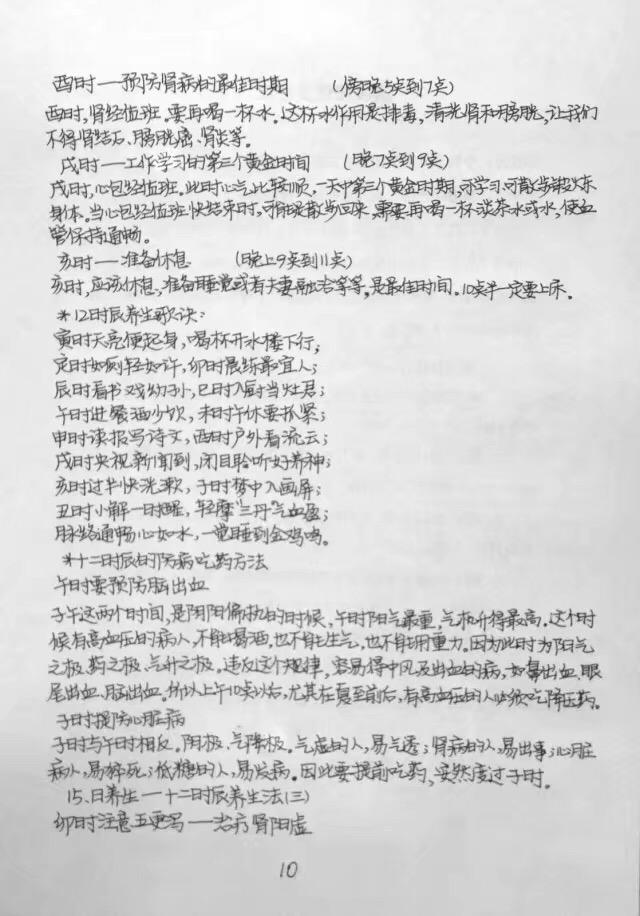 酉时——预防肾病的最佳时期 (傍晚5点到7点)
酉时,肾经值班。要再喝一杯水。这杯水作用是排毒,清洗肾和膀胱,让我们
不得肾结石、膀胱癌、肾炎等。
戌时——工作学习的第三个黄金时间 (晚7点到9点)
戌时,心包经值班,此时心气比较顺,一天中第三个黄金时期,可学习,可散步锻炼
身体。当心包经值班快结束时,可能是散步回来,需要再喝一杯淡茶水或水,使血
管保持通畅。
亥时——准备休息 (晚上9点到11点)
亥时,应该休息,准备睡觉或者夫妻融洽等等,是最佳时间。10点半一定要上床。
*12时辰养生歌诀:
寅时天亮便起身,喝杯开水楼下行;
定时如厕轻如许,卯时晨练最宜人;
辰时看书戏幼孙,巳时入厨当灶君;
午时进餐酒少饮,未时午休要抓紧;
申时读报写诗文,酉时户外看流云;
戌时央视新闻到,闭目聆听好养神;
亥时过半快洗漱,子时梦中入画屏;
丑时小解一时醒,轻摩"三丹"气血盈;
脉络通畅心如水,一觉睡到金鸡鸣。
*十二时辰的防病吃药方法
午时要预防脑出血
子午这两个时间,是阴阳偏执的时候,午时阳气最重,气机升得最高。这个时
候有高血压的病人,不能喝酒,也不能生气,也不能用重力。因为此时为阳气
之极,药之极、气升之极。违反这个规律,容易得中风及出血的病,如鼻出血、眼
尾出血、脑出血。所以上午10点以后,尤其在夏至前后,有高血压的人必须吃降压药。
子时提防心脏病
子时与午时相反。阴极、气降极。气虚的人,易气透;肾病的人,易出事;心脏
病人,易猝死;低糖的人,易发病。因此要提前吃药,安然度过子时。
15、日养生——十二时辰养生法(三)
卯时注意五更泻——治疗肾阳虚
10